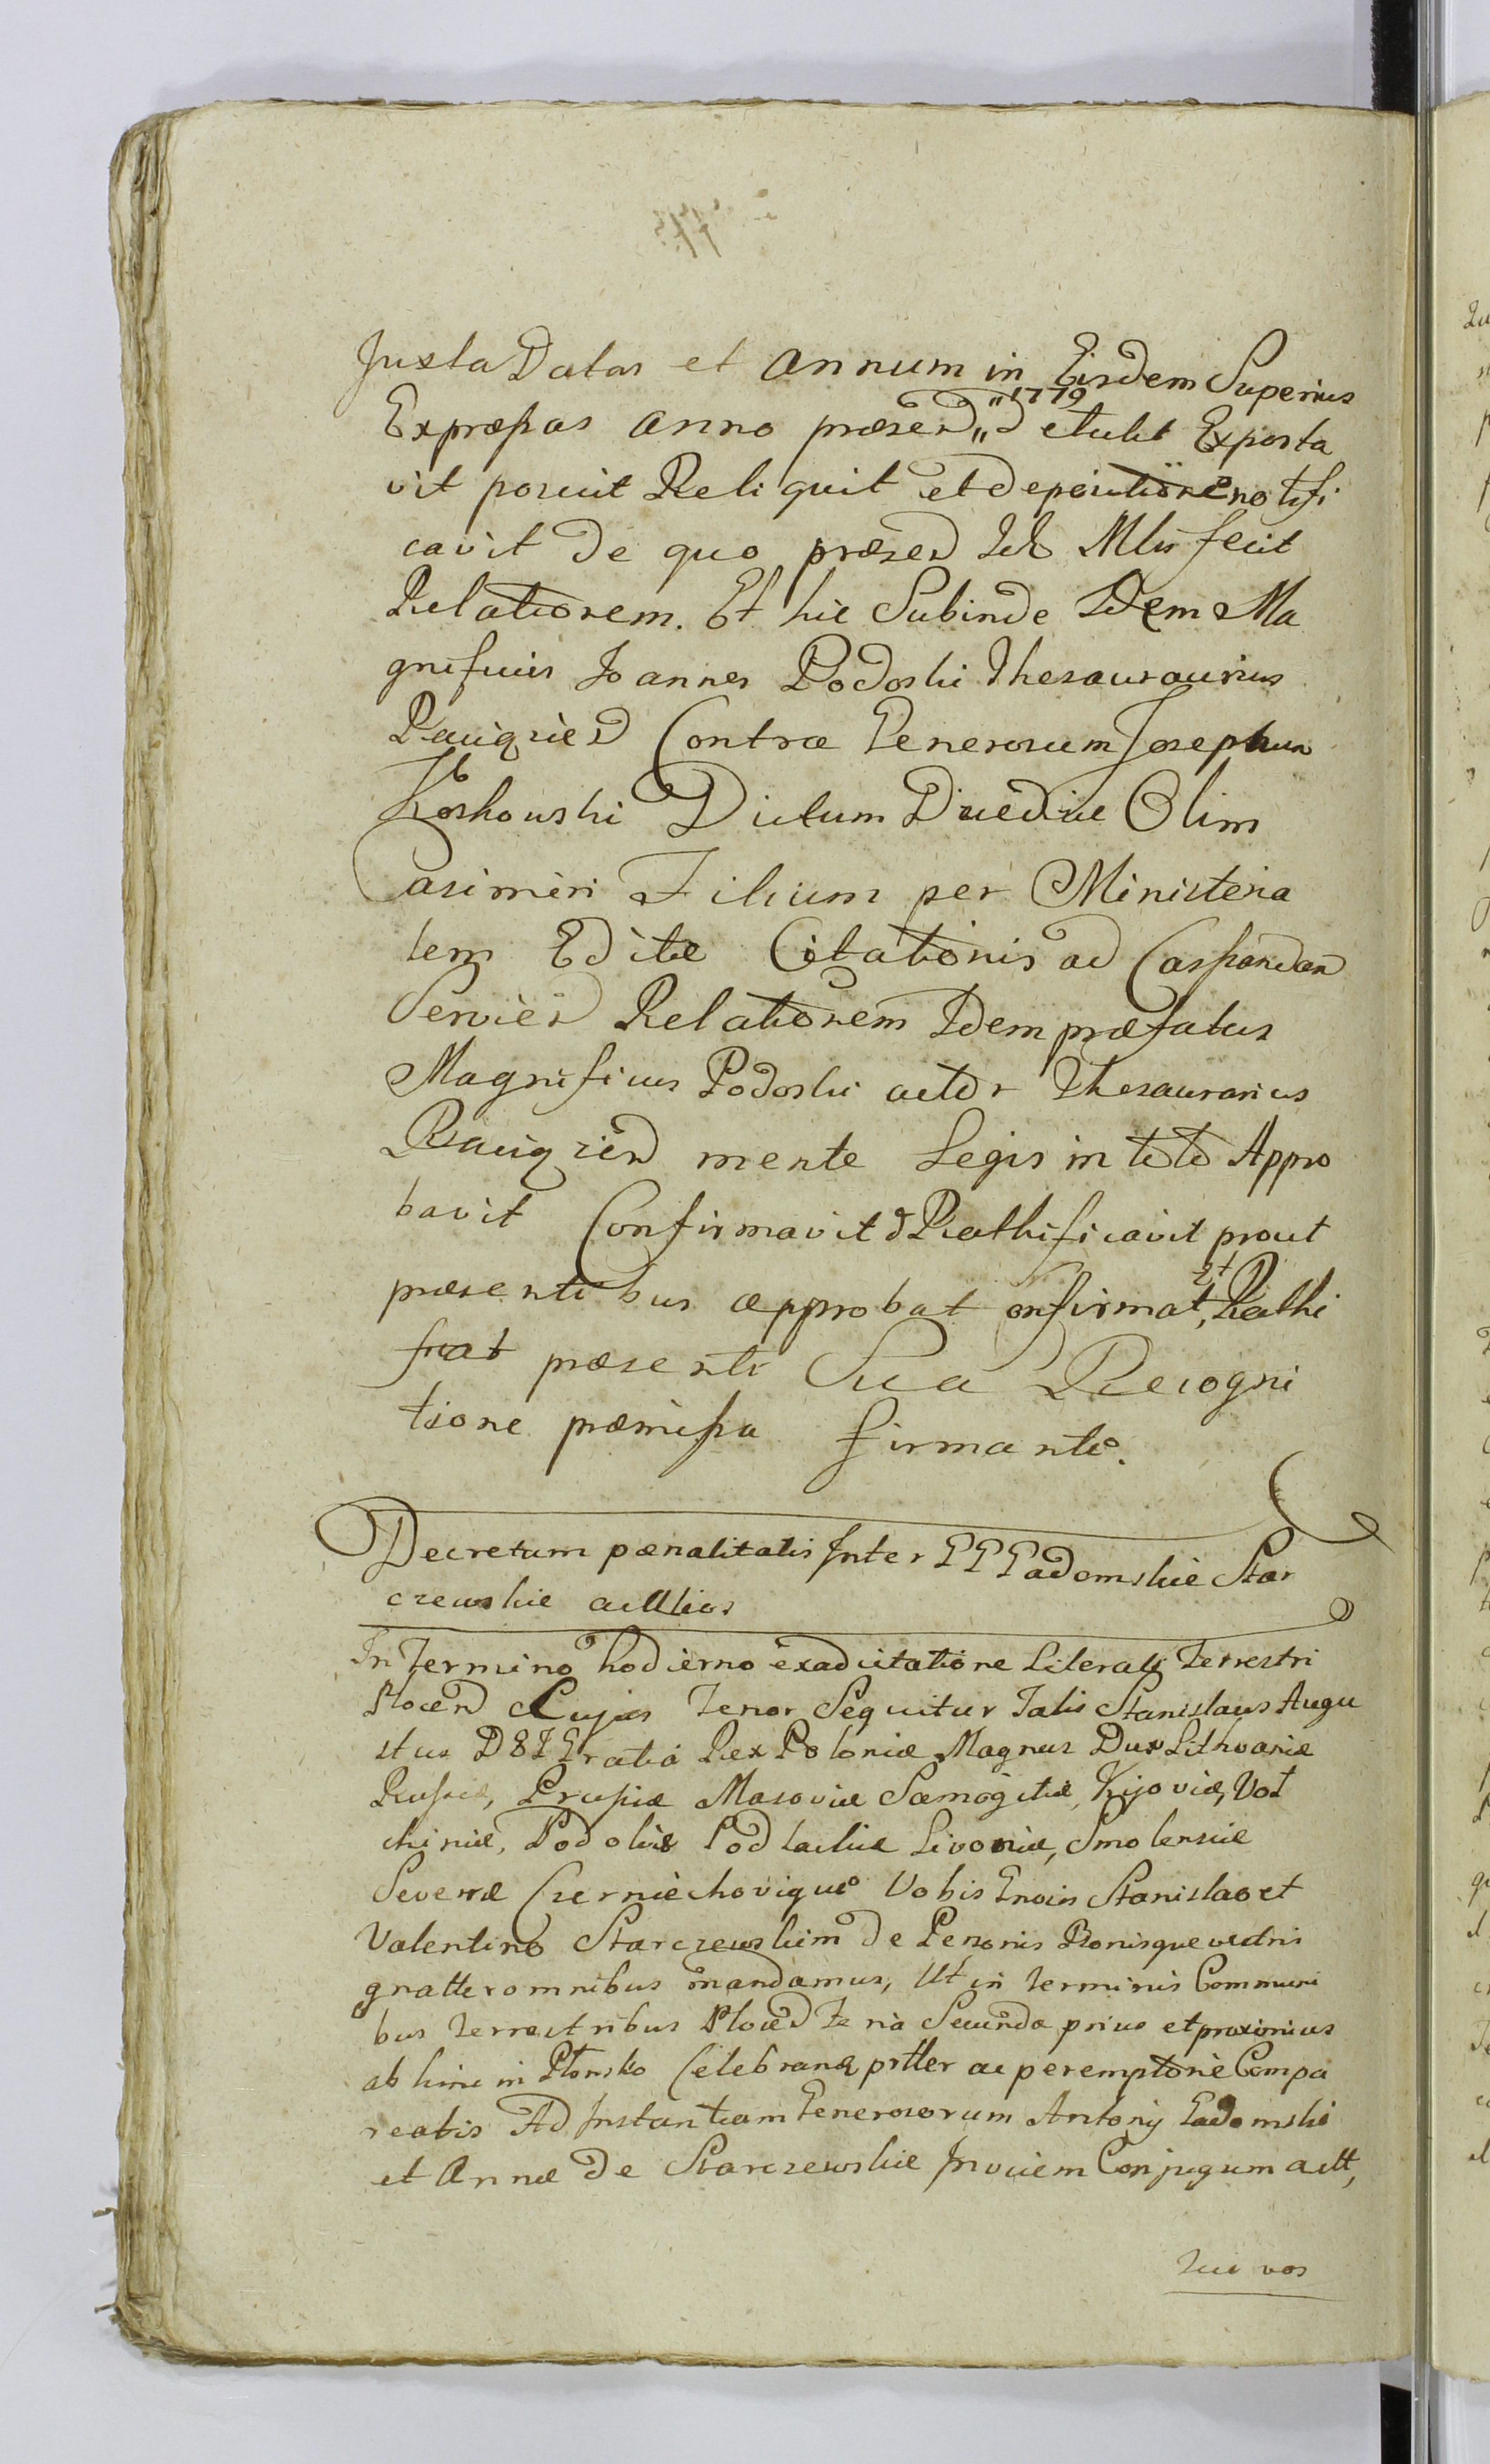 Juxta Datas et Annum in Eisdem Superius
Expressas anno præsen "1779 " detulit Exporta
vit posuit Reliquit et depositione notifi
cavit de quo præsen Idē Mlis fecit
Relationem. Et hic Subinde Idem Ma
gnificus Joannes Podoski Thesaurarius
Raciązień Contra Generosum Josephum
Koskowski Dictum Olim
Casimiri Filium per Ministeria
lem Editæ Citationis ad Cassandam
Servien Relationem Idem præfatus
Magnificus Podoski actor Thesaurarius
Raciązień mente Legis in toto Appro
bavit Confirmavit & Rathificavit prout
præsentibus approbat confirmat, et Rathi
ficat præsenti Sua Recogni
tione præmissa firmante.
Decretum pænalitatis Inter GG Gadomskie Star
czewskie
In Termino hodierno ex ad citatione Literali Terrestri
Plocen Cujus Tenor Sequitur Talis Stanislaus Augu
stus D & I Gratia Rex Poloniæ Magnus Dux Lithvaniæ
Russiæ, Prussiæ Masoviæ Samogitiæ, Kijoviæ, Vol
chiniæ, Podoliæ Podlachiæ Livoniæ, Smolensciæ
Severiæ Czerniechoviæque Vobis Gnosis Stanislao et
Valentino Starczewskim de Personis Bonisque vestris
gnatter omnibus mandamus, Ut in Terminis Communi
bus Terrestribus Plocen Feria Secunda prius et proximius
ab hinc in Płonsko Celebran prtter ac peremptorie Compa
reatis Ad Instantiam Generosorum Antonij Gadomski
et Annæ de Starczewskie Invicem Conjugum actt,
Qui vos